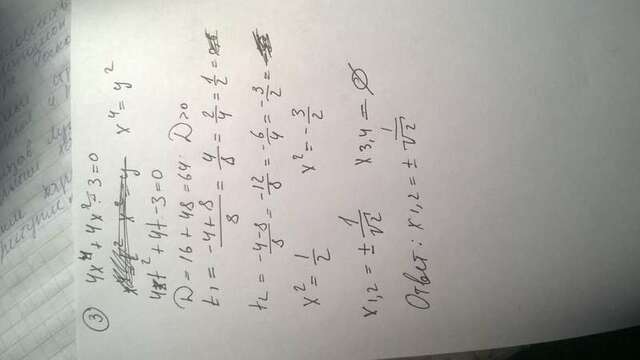 ③ 4x⁴ + 4x² - 3 = 0
x⁴ = y²
4t² + 4t - 3 = 0
D = 16 + 48 = 64. D > 0
t₁ = (-4+8)/8 = 4/8 = 2/4 = 1/2
t₂ = (-4-8)/8 = -12/8 = -6/4 = -3/2
x² = 1/2 x² = -3/2
x₁,₂ = ± 1/√2 x₃,₄ = ∅
Ответ: x₁,₂ = ± 1/√2